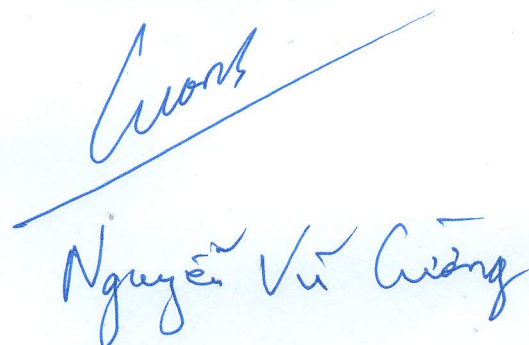 Cuong
Nguyễn Vũ Cường